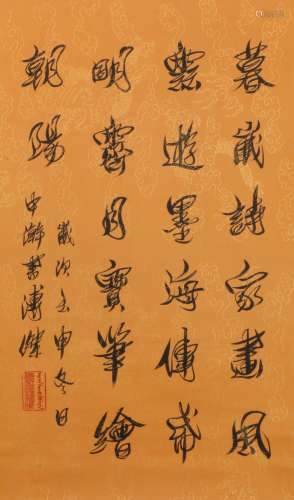 暮歲詩家畫風
遊墨海傳
明霽月寶筆繪
朝陽
歲次壬申冬日
中澣書溥傑